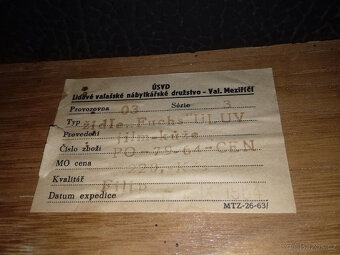 ÚSVD
Lidové valašské nábytkářské družstvo - Val. Meziříčí
Provozovna 03 Série 3
Typ židle "Fuchs" ULUV
Provedení jilm-kůže
Číslo zboží PO-79-64-CEN
MO cena
Kvalitář Filip
Datum expedice
MTZ-26-63/